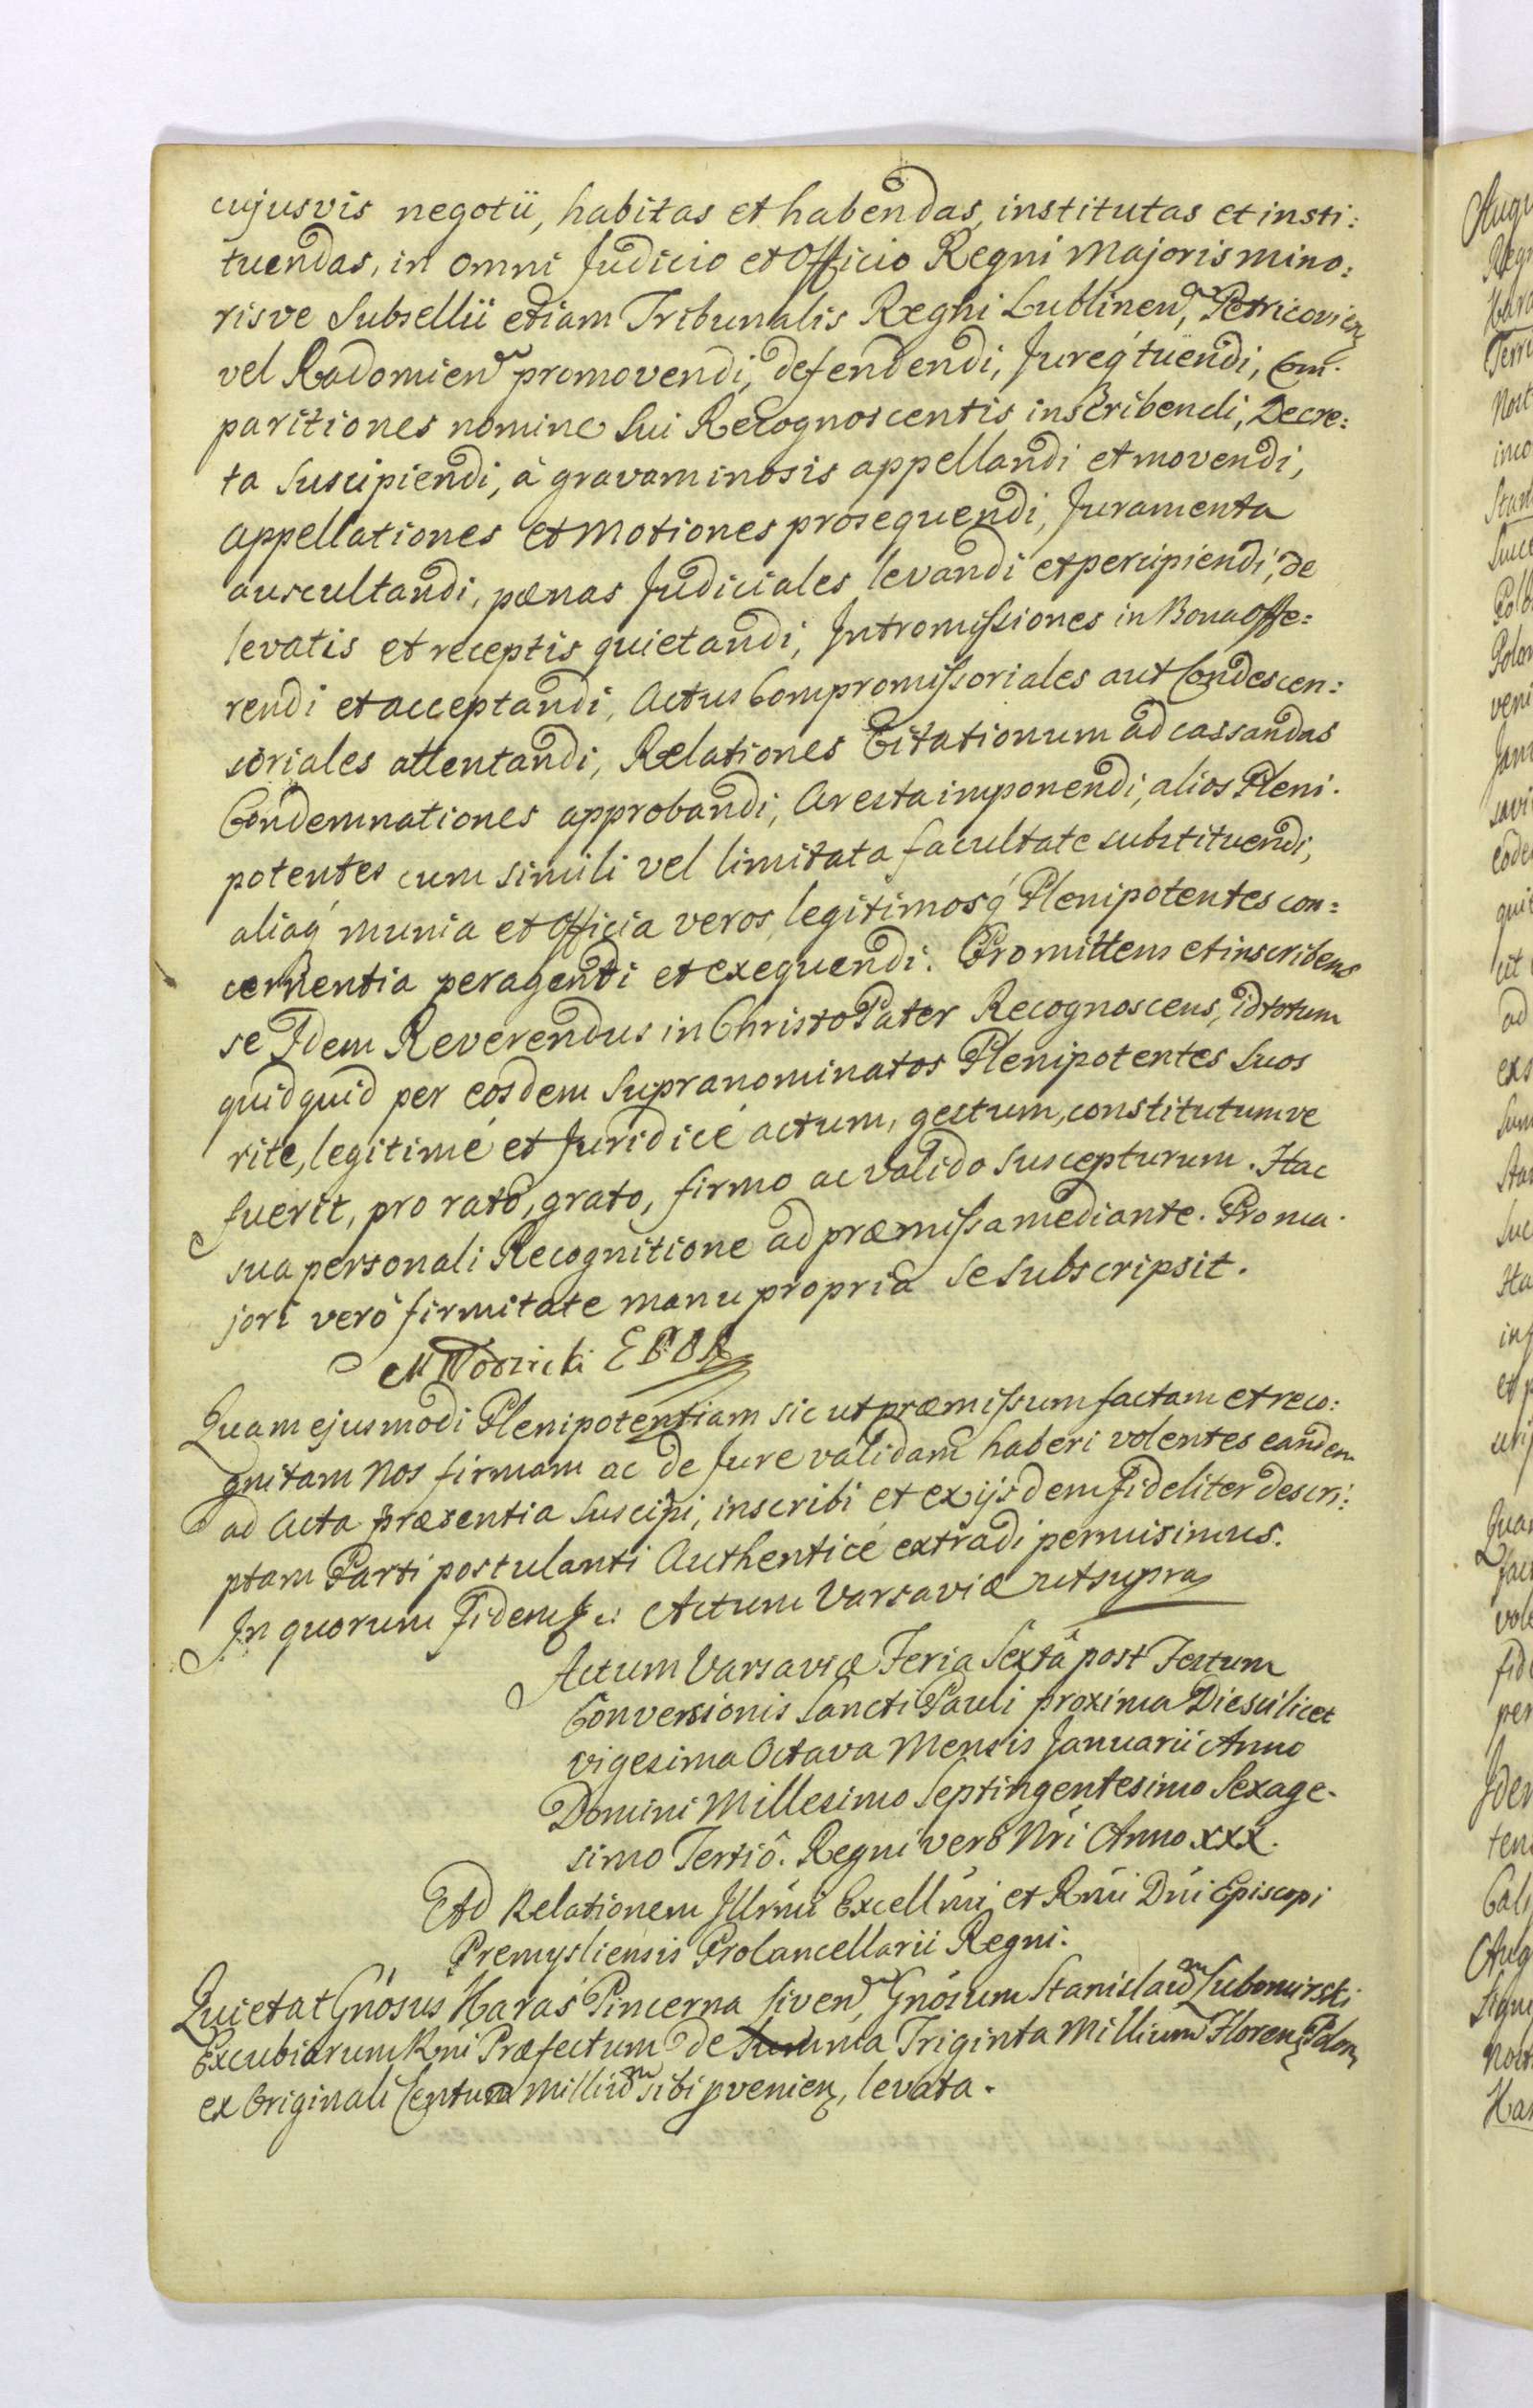 cujusvis negotii, habitas et habendas, institutas et insti:
tuendas, in omni Judicio et Officio Regni Majoris mino:
risve Subsellii etiam Tribunalis Regni Lublinen, Petricovien
vel Radomien promovendi, defendendi, Jureq́ tuendi, Com:
paritiones nomine Sui Recognoscentis inscribendi, Decre:
ta Suscipiendi, à gravaminosis appellandi et movendi,
appellationes et Motiones prosequendi, Juramenta
auscultandi, pænas Judiciales levandi et percipiendi, de
levatis et receptis quietandi, Intromissiones in Bona offe:
rendi et acceptandi, Actus Compromissoriales aut Condescen:
soriales attentandi, Relationes Citationum ad cassandas
Condemnationes approbandi, Aresta imponendi, alios Pleni:
potentes cum simili vel limitata facultate substituendi,
aliaq́ munia et Officia veros, legitimosq́ Plenipotentes con:
cernentia peragendi et exequendi. Promittens et inscribens
se Idem Reverendus in Christo Pater Recognoscens, id totum
quidquid per eosdem Supranominatos Plenipotentes Suos
rite, legitimé et Juridicé actum, gestum, constitutumve
fuerit, pro rato, grato, firmo ac valido Suscepturum. Hac
sua personali Recognitione ad præmissa mediante. Pro ma:
jori vero firmitate manu propria se Subscripsit.
M Wodzicki E P
Quam ejusmodi Plenipotentiam sic ut præmissum factam et reco:
gnitam Nos firmam ac de Jure validam haberi volentes eandem
ad Acta præsentia Suscipi, inscribi et ex ijsdem fideliter descri:
ptam Parti postulanti Authenticé extradi permisimus.
In quorum Fidem &: Actum Varsaviæ ut supra
Actum Varsaviæ Feria Sextâ post Festum
Conversionis Sancti Pauli proxima Die scilicet
vigesima Octava Mensis Januarii Anno
Domini Millesimo Septingentesimo Sexage-
simo Tertiô. Regni vero Nri Anno XXX.
Ad Relationem Illrmi Excellmi et Rmi Dni Episcopi
Premysliensis Procancellarii Regni.
Quietat Gnosus Haraś Pincerna Liven, Gnosum Stanislaum Lubomirski
Excubiarum Rni Præfectum de Summa Triginta Millium Floren Polon
ex Originali Centum Millium sibi pvenien, levata.